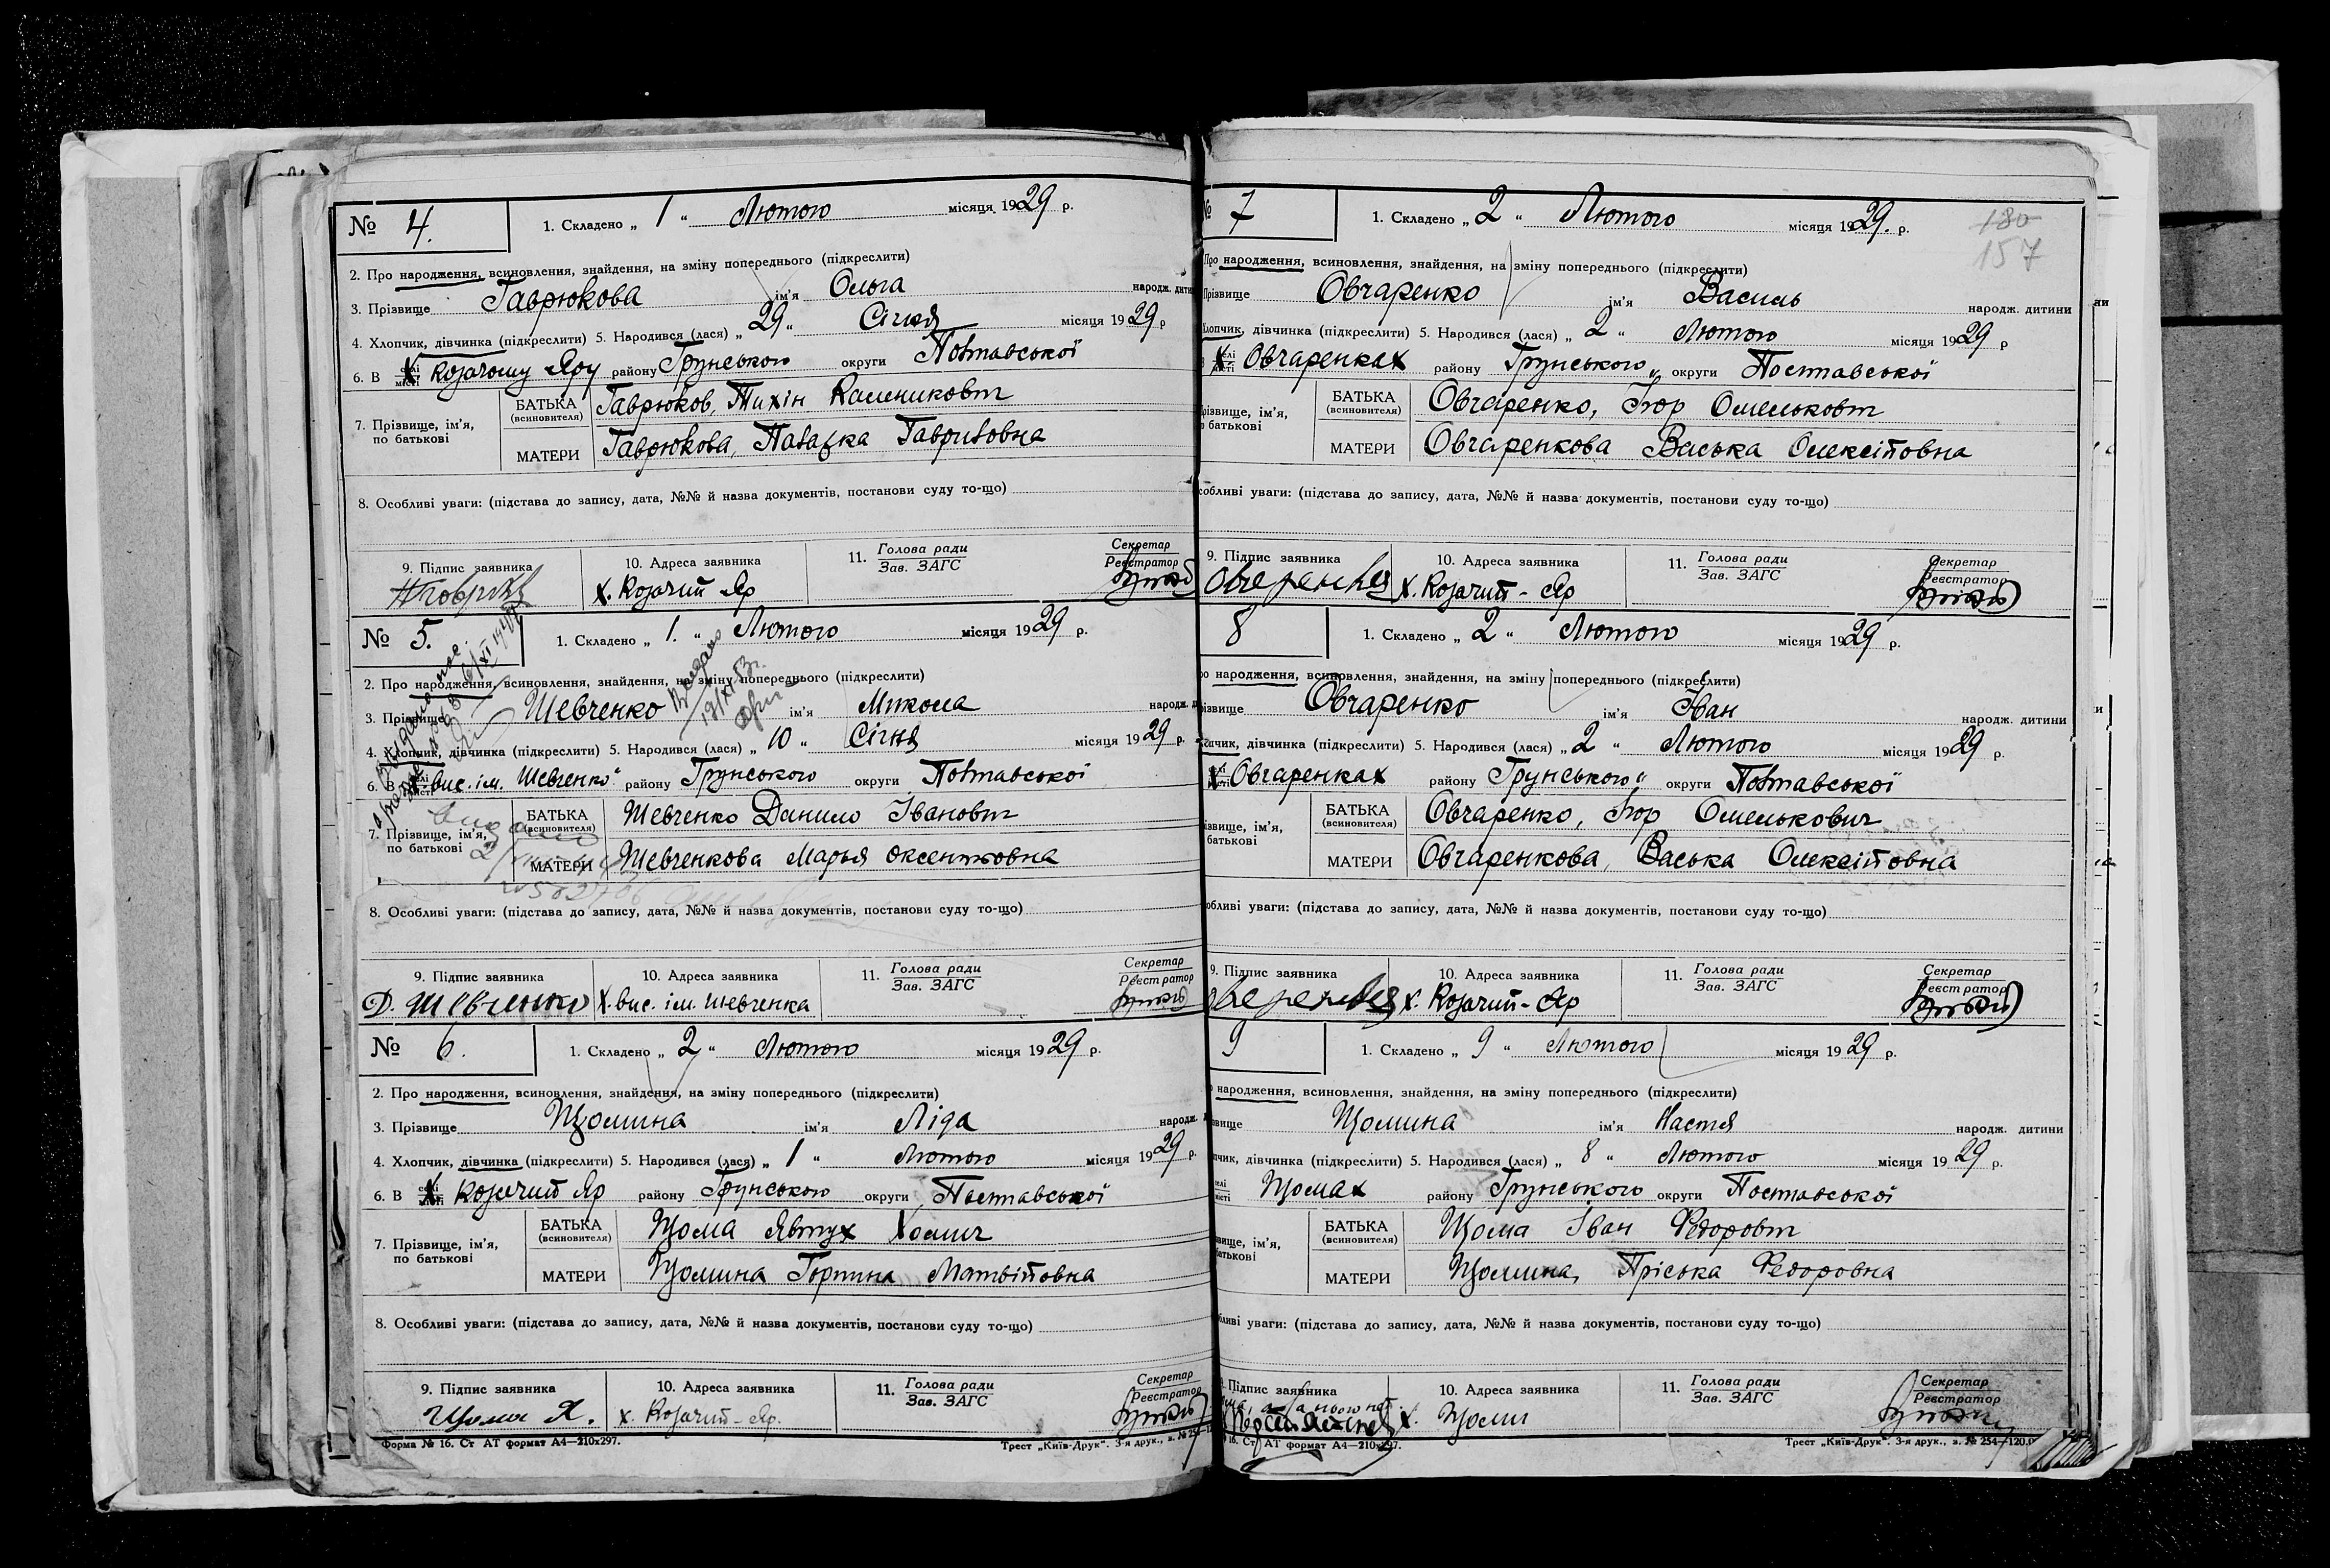 № 4. 1. Складено „ 1 " Лютого місяця 1929 р.
2. Про народження, всиновлення, знайдення, на зміну попереднього (підкреслити)
3. Прізвище Гаврюкова ім'я Ольга народж. дити
4. Хлопчик, дівчинка (підкреслити) 5. Народився (лася) „ 29 " Січня місяця 1929 р
6. В Х Козачому Яру району Грунського округи Полтавської
7. Прізвище, ім'я, по батькові
БАТЬКА (всиновителя) Гаврюков, Тихін Калениковт
МАТЕРИ Гаврюкова, Палажка Гавриловна
8. Особливі уваги: (підстава до запису, дата, №№ й назва документів, постанови суду то-що)
9. Підпис заявника 10. Адреса заявника 11. Голова ради Зав. ЗАГС Секретар Реєстратор
х. Козачий Яр
№ 5. 1. Складено „ 1. " Лютого місяця 1929 р.
2. Про народження, всиновлення, знайдення, на зміну попереднього (підкреслити)
3. Прізвище Шевченко ім'я Микола народж.
4. Хлопчик, дівчинка (підкреслити) 5. Народився (лася) „ 10 " Січня місяця 1929 р.
6. В х. вис. ім. Шевченко" району Грунського округи Полтавської
7. Прізвище, ім'я, по батькові
БАТЬКА (всиновителя) Шевченко Данило Івановт
МАТЕРИ Шевченкова Марья Оксентовна
8. Особливі уваги: (підстава до запису, дата, №№ й назва документів, постанови суду то-що)
9. Підпис заявника 10. Адреса заявника 11. Голова ради Зав. ЗАГС Секретар Реєстратор
Д. Шевченко х. вис. ім. Шевченка
№ 6. 1. Складено „ 2 " Лютого місяця 1929 р.
2. Про народження, всиновлення, знайдення, на зміну попереднього (підкреслити)
3. Прізвище Щомина ім'я Ліда народж.
4. Хлопчик, дівчинка (підкреслити) 5. Народився (лася) „ 1 " Лютого місяця 1929 р.
6. В Х Козачий Яр району Грунського округи Полтавської
7. Прізвище, ім'я, по батькові
БАТЬКА (всиновителя) Щома Явтух Хомич
МАТЕРИ Щомина Горпина Матвійовна
8. Особливі уваги: (підстава до запису, дата, №№ й назва документів, постанови суду то-що)
9. Підпис заявника 10. Адреса заявника 11. Голова ради Зав. ЗАГС Секретар Реєстратор
Щома Я. х. Козачий-Яр.
Форма № 16. Ст АТ формат А4—210х297. Трест „Київ-Друк". 3-я друк., з. № 254
№ 7 1. Складено „ 2 " Лютого місяця 1929. р. 180
157
Про народження, всиновлення, знайдення, на зміну попереднього (підкреслити)
Прізвище Овчаренко ім'я Василь народж. дитини
Хлопчик, дівчинка (підкреслити) 5. Народився (лася) „ 2 " Лютого місяця 1929 р
Х Овчаренках району Грунського" округи Полтавської
різвище, ім'я, батькові
БАТЬКА (всиновителя) Овчаренко, Ігор Омельковт
МАТЕРИ Овчаренкова Васька Олексійовна
собливі уваги: (підстава до запису, дата, №№ й назва документів, постанови суду то-що)
9. Підпис заявника 10. Адреса заявника 11. Голова ради Зав. ЗАГС Секретар Реєстратор
х. Козачий-Яр
8 1. Складено „ 2 " Лютого місяця 1929 р.
народження, всиновлення, знайдення, на зміну попереднього (підкреслити)
різвище Овчаренко ім'я Іван народж. дитини
дівчинка (підкреслити) 5. Народився (лася) „ 2 " Лютого місяця 1929 р.
Х Овчаренках району Грунського" округи Полтавської
ізвище, ім'я, батькові
БАТЬКА (всиновителя) Овчаренко, Ігор Омелькович
МАТЕРИ Овчаренкова, Васька Олексійовна
обливі уваги: (підстава до запису, дата, №№ й назва документів, постанови суду то-що)
9. Підпис заявника 10. Адреса заявника 11. Голова ради Зав. ЗАГС Секретар Реєстратор
х. Козачий-Яр
9 1. Складено „ 9 " Лютого місяця 1929 р.
народження, всиновлення, знайдення, на зміну попереднього (підкреслити)
Щомина ім'я Настя народж. дитини
дівчинка (підкреслити) 5. Народився (лася) „ 8 " Лютого місяця 1929 р.
Щомах району Грунського округи Полтавської
ім'я, батькові
БАТЬКА (всиновителя) Щома Іван Федоровт
МАТЕРИ Щомина, Пріська Федоровна
уваги: (підстава до запису, дата, №№ й назва документів, постанови суду то-що)
Підпис заявника 10. Адреса заявника 11. Голова ради Зав. ЗАГС Секретар Реєстратор
х. Щоми
16. Ст АТ формат А4—210х297. Трест „Київ-Друк". 3-я друк., з. № 254—120.0